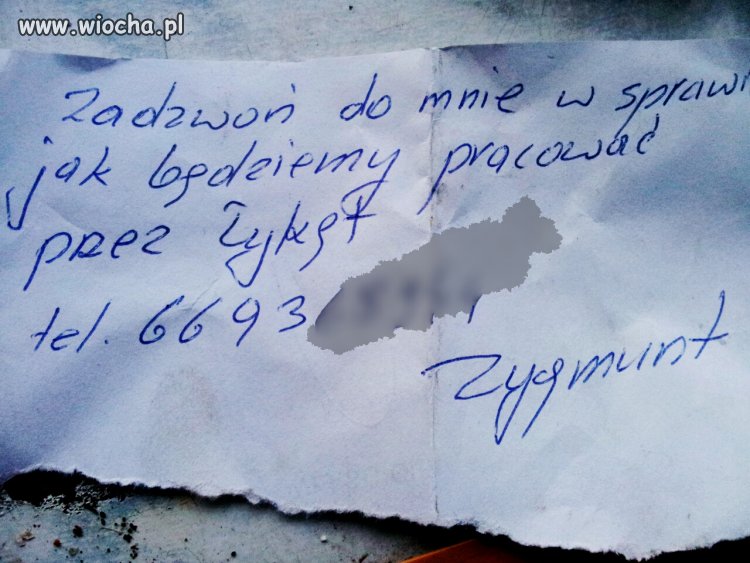 www.wiocha.pl
Zadzwoń do mnie w sprawi
jak będziemy pracować
przez Łykęt
tel. 6693
Zygmunt